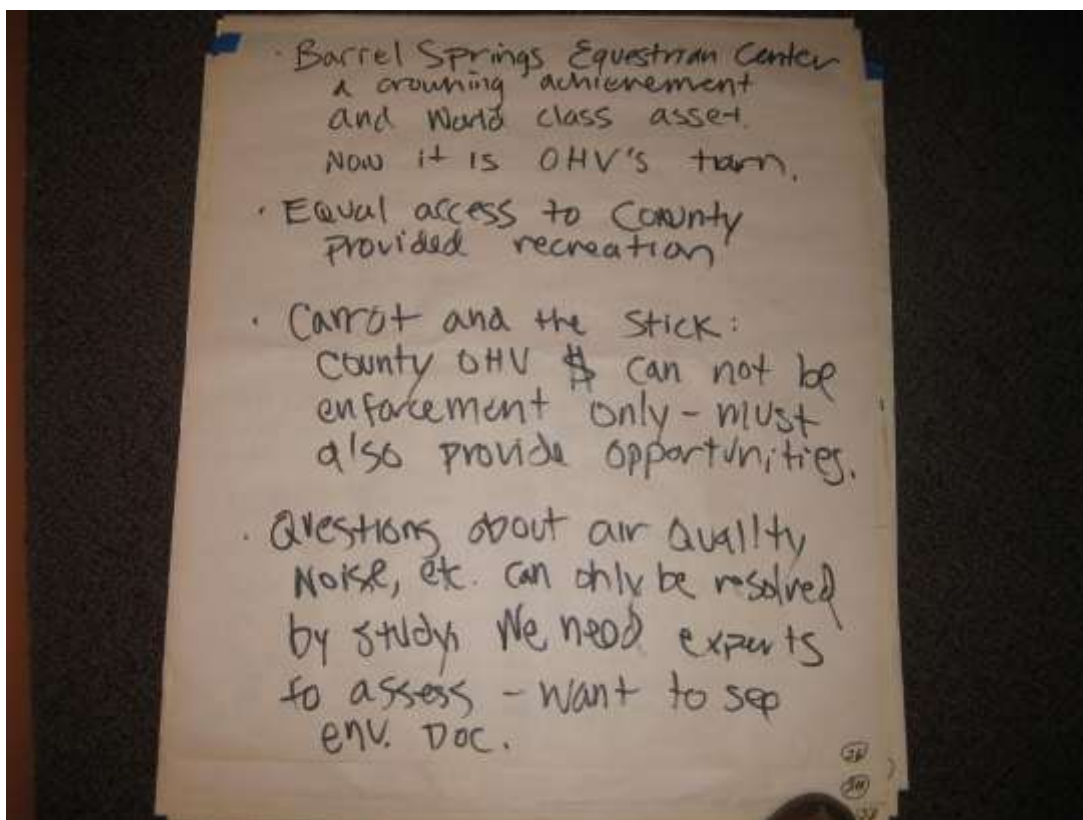 · Barrel Springs Equestrian Center
a crowning achievement
and World class asset.
Now it is OHV's turn.
· Equal access to County
provided recreation
· Carrot and the stick:
County OHV $ can not be
enforcement only - must
also provide opportunities.
· Questions about air Quality,
Noise, etc. can only be resolved
by study. We need experts
to assess - want to see
env. Doc.